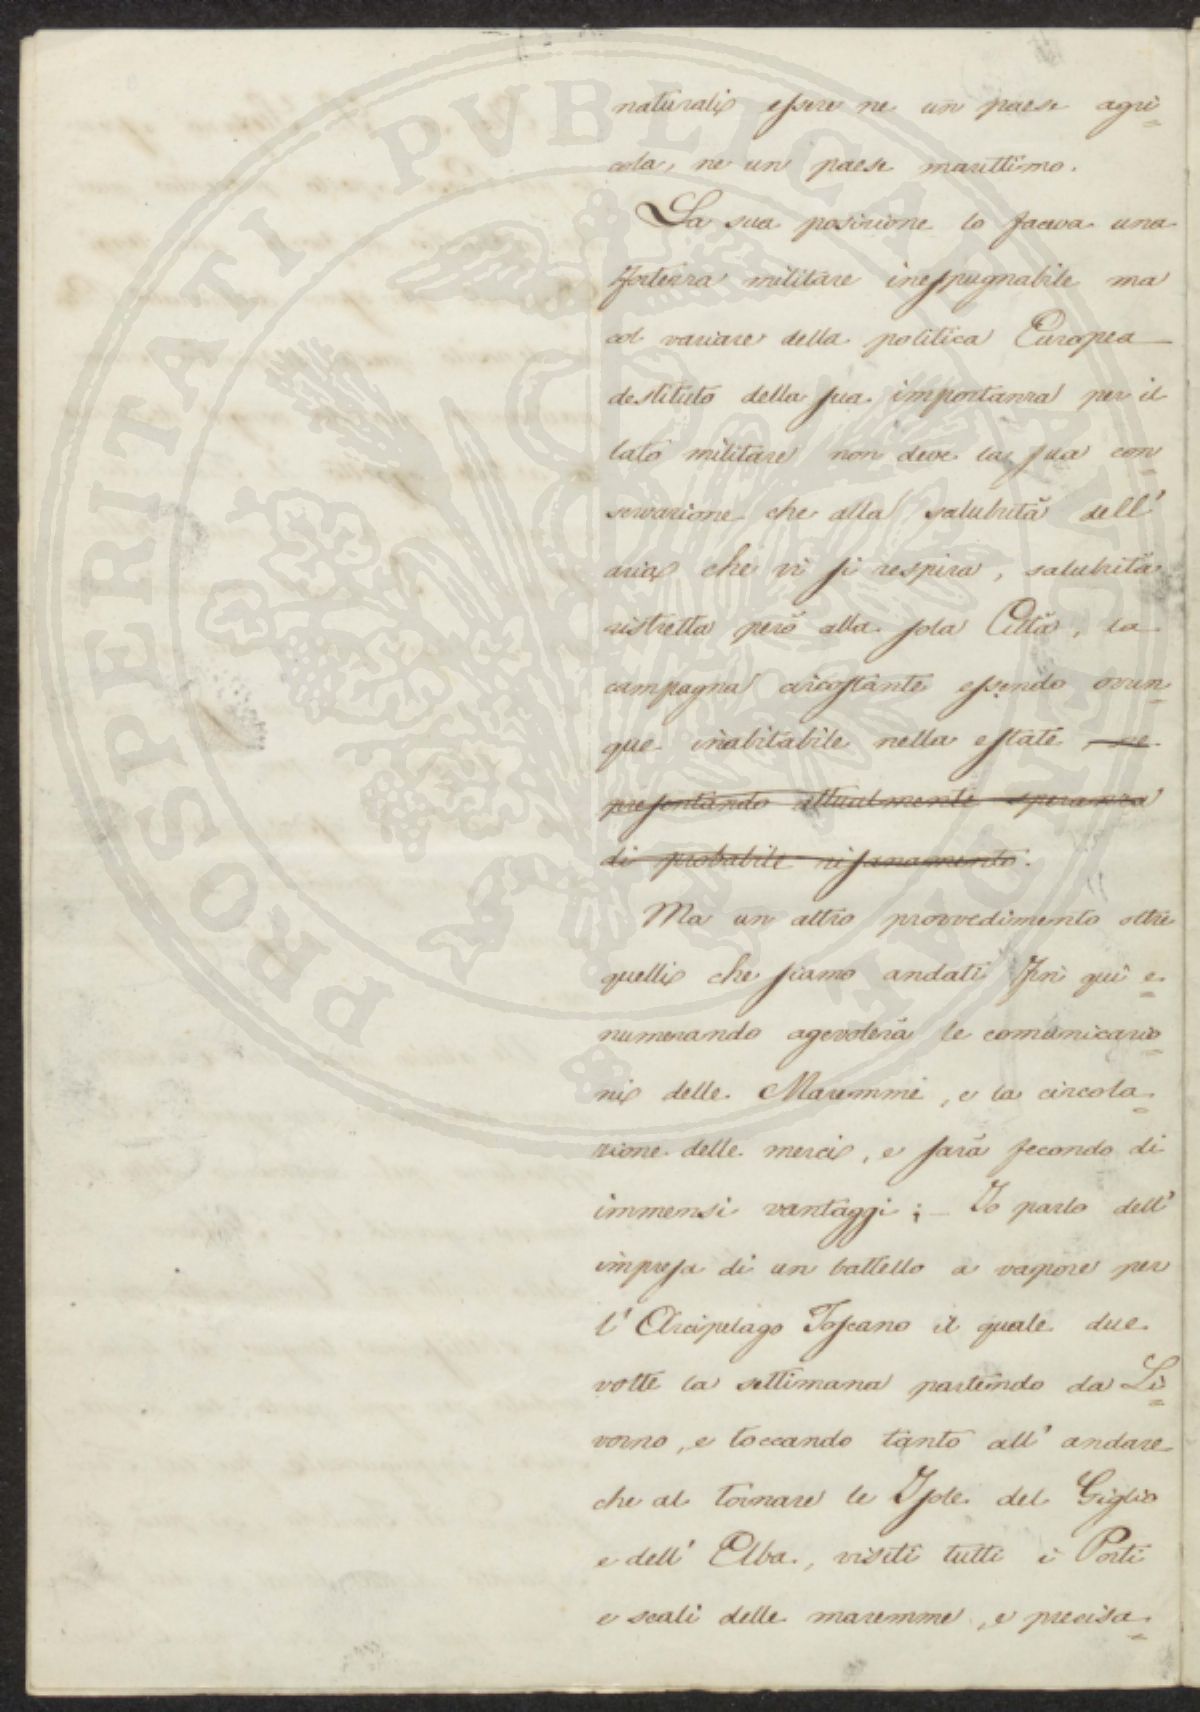 naturali essere ne un paese agri=
cola, ne un paese marittimo.
La sua posizione lo faceva una
fortezza militare inespugnabile ma
col variare della politica Europea
destituto della sua importanza per il
lato militare non deve la sua con=
servazione che alla salubrità dell'
aria che vi si respira, salubrità
ristretta però alla sola Città, la
campagna circostante essendo ovun=
que inabitabile nella estate, ne
presentando attualmente speranza
di probabile risanamento.
Ma un altro provvedimento oltre
quelli che siamo andati fin quì e=
numerando agevolerà le comunicazio=
ni delle Maremme, e la circola=
zione delle merci, e sarà fecondo di
immensi vantaggi; - Io parlo dell'
impresa di un battello a vapore per
l'Arcipelago Toscano il quale due
volte la settimana partendo da Li=
vorno, e toccando tanto all'andare
che al tornare le Isole del Giglio
e dell'Elba, visiti tutti i Porti
e scali delle maremme, e precisa=
PROSPERITATI PUBLICAE AUGENDAE